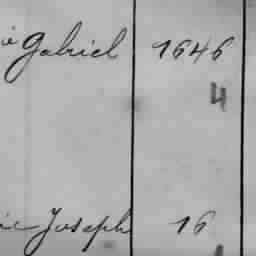 Gabriel 1646
4
Joseph 16